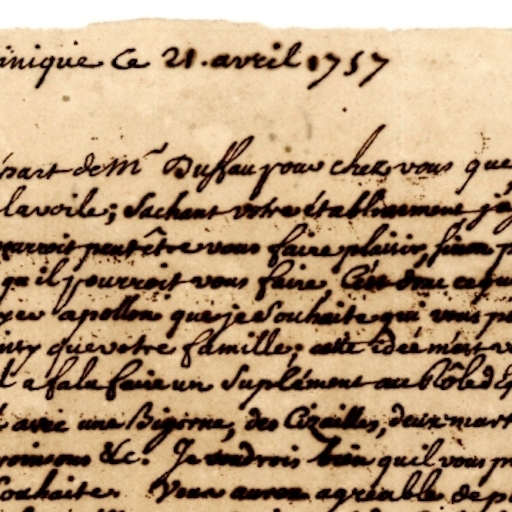 inique Ce 21. avril 1757
épart de Mr Duffau pour chez vous que
la voile; Sachant votre établissement j'ay
pourroit peut être vous faire plaisir, sinon p
qu'il pourroit vous faire, C'est donc ce qu
apollon que je Souhaite qui vous p
que votre famille; cette idée m'ait v
l a falu faire un Suplément au Rôle d'Eq
avec une Bigorne, des Cizailles, deux mart
&c. Je voudrois bien qu'il vous p
Souhaite. Vous aurez agréable de p